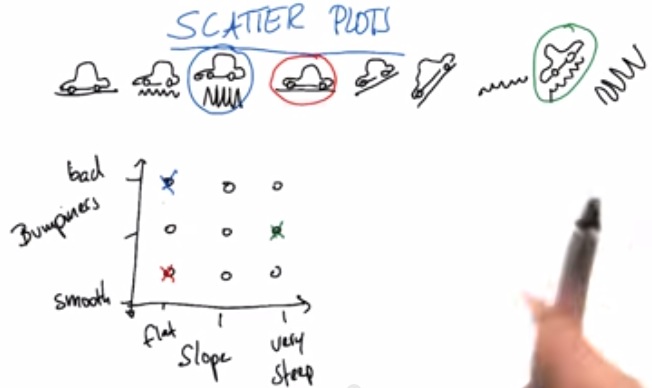 SCATTER PLOTS
bad
Bumpiness
smooth
flat
Slope
very
steep